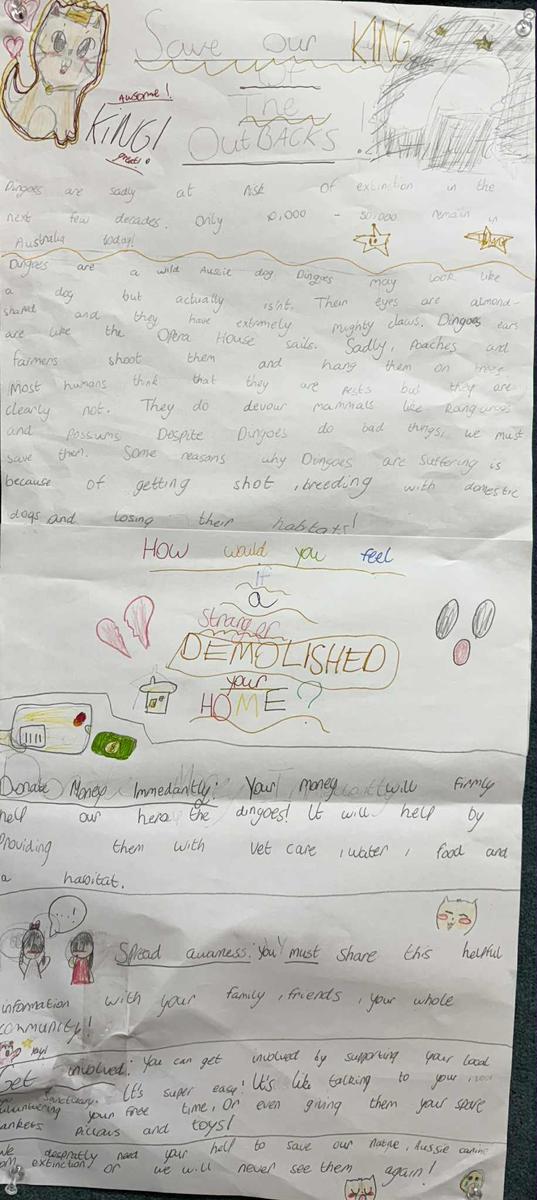 Save our KING
Of
The
OutBACKS!
Awsome!
KING!
great!
Dingoes are sadly at risk of extinction in the
next few decades. Only 10,000 - 50,000 remain in
Australia today!
Dingoes are a wild Aussie dog. Dingoes may look like
a dog but actually isn't. Their eyes are almond-
shaped and they have extremely mighty claws. Dingoes ears
are like the Opera House sails. Sadly, Poaches and
farmers shoot them and hang them on trees
Most humans think that they are pests but they are
clearly not. They do devour mammals like Kangaroos
and Possums Despite Dingoes do bad things, we must
save them. Some reasons why Dingoes are suffering is
because of getting shot, breeding with domestic
dogs and losing their habtats!
How would you feel
if
a
stranger
DEMOLISHED
your
HOME?
Donate Money Immedantly: Your money will firmly
help our hero the dingoes! It will help by
Providing them with vet care, water, food and
a habitat.
...!
Spread awarness: You must share this helpful
information with your family, friends, your whole
community!
Yay!
Get involved: You can get involved by supporting your local
Sanctuary. It's super easy! It's like talking to your
volunteering your free time, Or even giving them your spare
blankets pillows and toys!
We despratly need your help to save our native, Aussie canine
from extinction or we will never see them again!